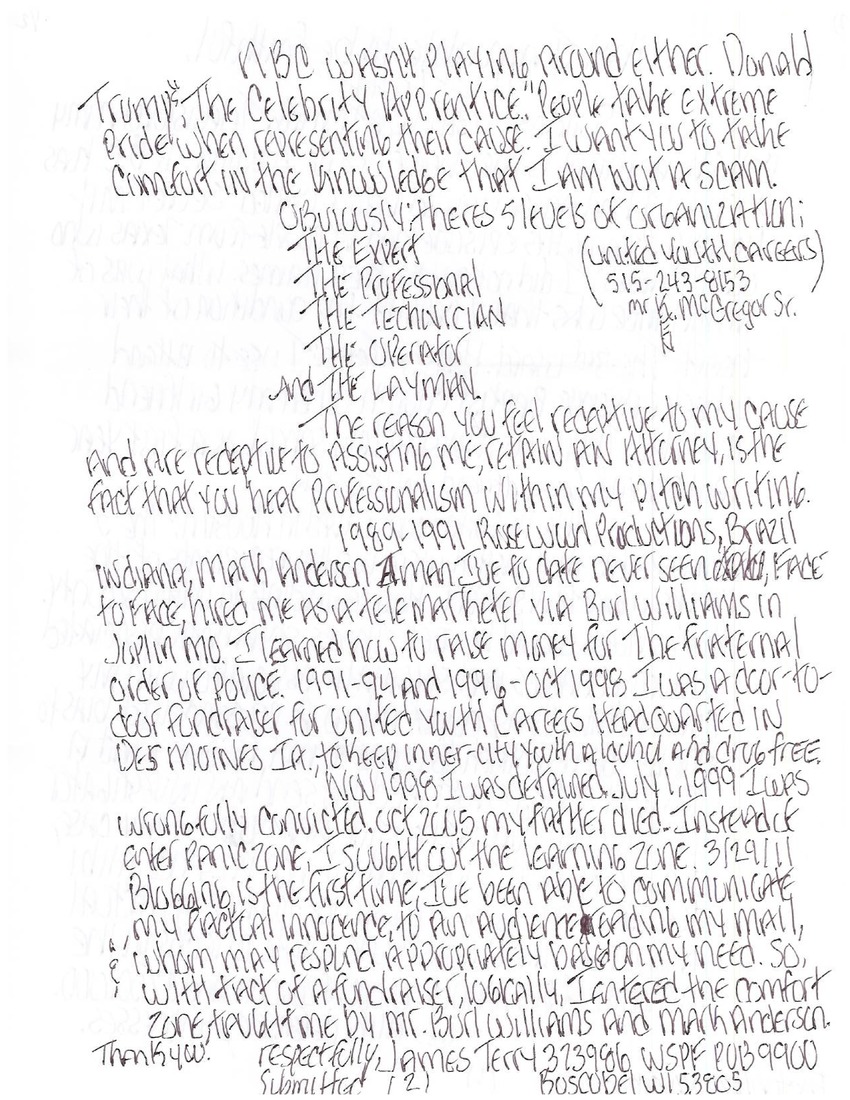 NBC wasn't playing around either. Donald
Trump's "The Celebrity Apprentice." People take extreme
pride when representing their cause. I want you to take
comfort in the knowledge that I am not a scam.
Obviously, theres 5 levels of organization;
The Expert
(United Youth Careers)
The Professional
515-243-8153
The Technician
Mr. K. McGregor Sr.
The Operator
And The Layman.
The reason you feel receptive to my cause
and are receptive to assisting me, retain an attorney, is the
fact that you hear professionalism within my pitch writing.
1989-1991 Rosewood Productions, Brazil
Indiana, Mark Anderson A man I've to date never seen, face
to face, hired me as a telemarketer via Burl Williams in
Joplin Mo. I learned how to raise money for The Fraternal
order of Police. 1991-94 and 1996-Oct 1998 I was a door-to-
door fundraiser for United Youth Careers Headquarted in
Des Moines Ia., to keep inner-city youth alcohol and drug free.
Nov 1998 I was detained. July 1, 1999 I was
wrongfully convicted. Oct 2005 my father died. Instead of
enter panic zone, I sought out the learning zone. 3/29/11
Blogging, is the first time, I've been able to communicate
my factual innocence, to an audience reading my mail,
whom may respond appropriately based on my need. So,
with tact of a fundraiser, logically, I entered the comfort
zone, taught me by Mr. Burl Williams and Mark Anderson.
Thank you! respectfully, James Terry 373986 WSPF POB 9900
Submitted (2) Boscobel WI 53805